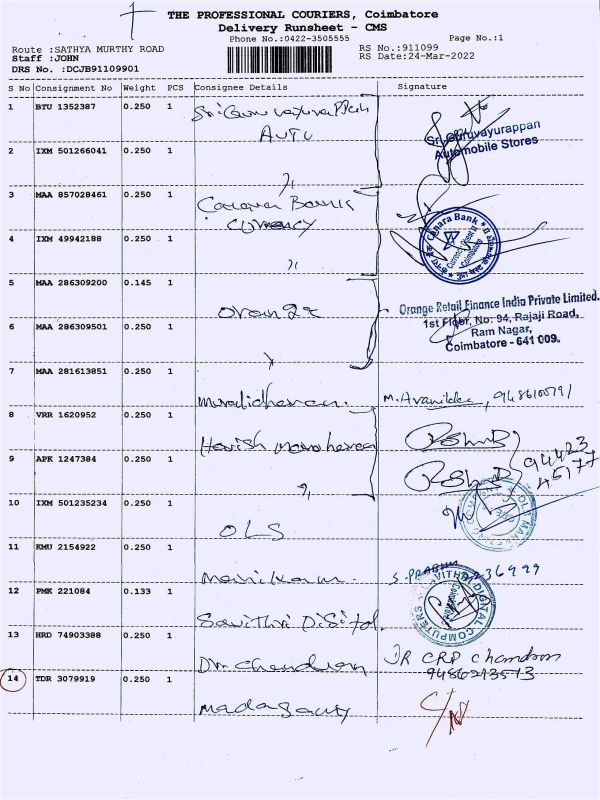 THE PROFESSIONAL COURIERS, Coimbatore
Delivery Runsheet - CMS
Phone No.:0422-3505555 Page No.:1
Route :SATHYA MURTHY ROAD RS No.:911099
Staff :JOHN RS Date:24-Mar-2022
DRS No. :DCJB91109901
S No Consignment No Weight PCS Consignee Details Signature
1 BTU 1352387 0.250 1
AUTO
Sri Guruvayurappan
Automobile Stores
2 IXM 501266041 0.250 1
3 MAA 857028461 0.250 1
Currency
Canara Bank
4 IXM 49942188 0.250 1
5 MAA 286309200 0.145 1
Orange
Orange Retail Finance India Private Limited.
1st Floor, No: 94, Rajaji Road,
Ram Nagar,
Coimbatore - 641 009.
6 MAA 286309501 0.250 1
7 MAA 281613851 0.250 1
Muralidharan.
8 VRR 1620952 0.250 1
Harish
9 APK 1247384 0.250 1
94423
45177
10 IXM 501235234 0.250 1
OLS
11 KMU 2154922 0.250 1
S. PRABHU
12 PMK 221084 0.133 1
Savithri Digital
SAVITHRI DIGITAL COMPUTERS
13 HRD 74903388 0.250 1
Dr. Chandran
Chandran
14 TDR 3079919 0.250 1